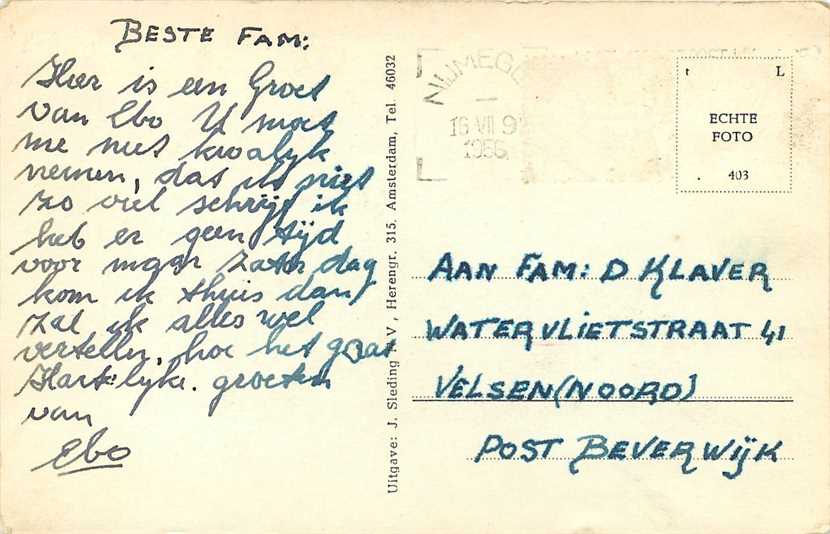 BESTE FAM:
Hier is een Groet
van Ebo U moet
me niet kwalyk
nemen, dat ik niet
zo viel schrijf ik
heb er geen tijd
voor maar Zater dag
kom ik thuis dan
zal ik alles wel
vertellen, hoe het gaat
Hartelyke. groeten
van
Ebo
Uitgave: J. Sleding N.V, Herengr. 315. Amsterdam, Tel. 46032
NIJMEGE
16 VII 9
1956
t L
ECHTE
FOTO
403
AAN FAM: D KLAVER
WATERVLIETSTRAAT 41
VELSEN (NOORD)
POST BEVERWIJK